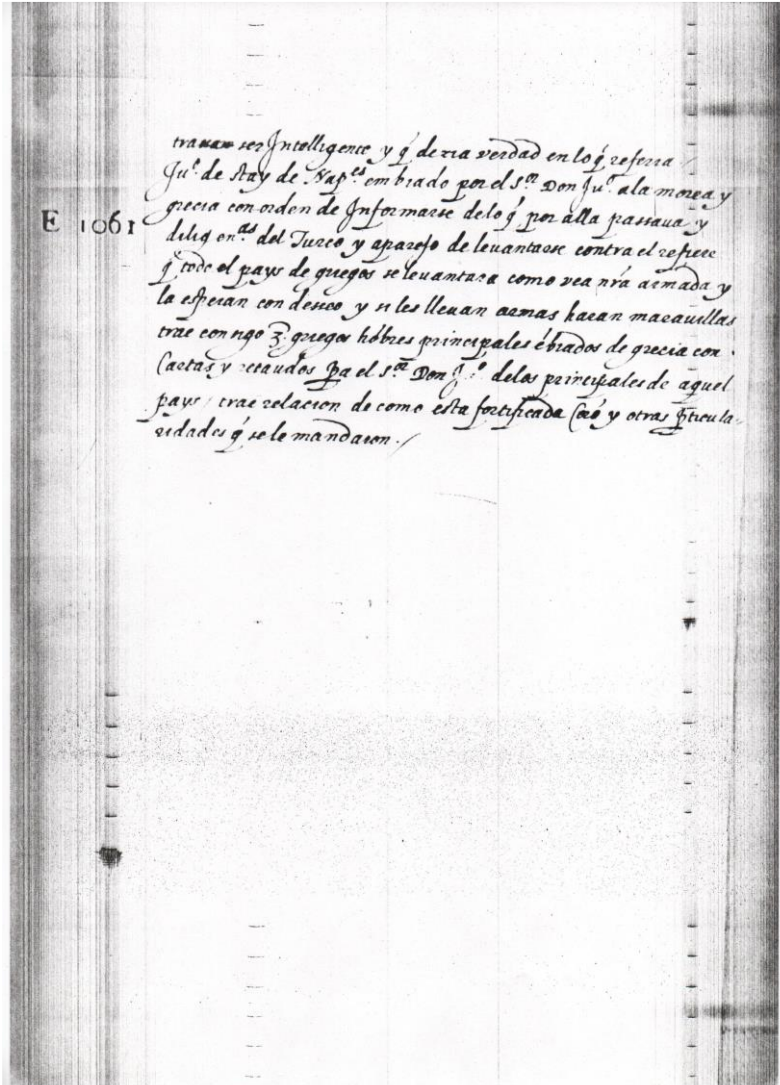 ser Intelligente y q̃ dezia verdad en lo q̃ referia /
Ju.º de Stay de Nap.es embiado por el s.or Don Ju.º a la morea y
grecia con orden de Informarse de lo q̃ por alla passava y
E 1061
dilig en.as del Turco y aparejo de levantarse contra el refiere
q̃ todo el pays de griegos se levantara como vea nr̃a armada y
la esperan con deseo y si les llevan armas haran maravillas
trae consigo 3. griegos hõbres principales ẽbiados de grecia con
Cartas y recaudos p̃a el s.or Don J.º de los principales de aquel
pays / trae relacion de como esta fortificada y otras p̃ticula-
ridades q̃ se le mandaron . /